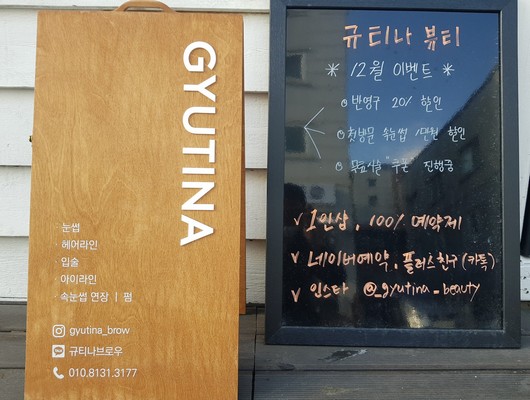 GYUTINA
· 눈썹
· 헤어라인
· 입술
· 아이라인
· 속눈썹 연장 | 펌
gyutina_brow
규티나브로우
010.8131.3177
규티나 뷰티
* 12월 이벤트 *
반영구 20% 할인
첫방문 속눈썹 1만원 할인
진행중
✓ 1인샵, 100% 예약제
✓ 네이버예약, 플러스친구(카톡)
✓ 인스타 @_gyutina_beauty